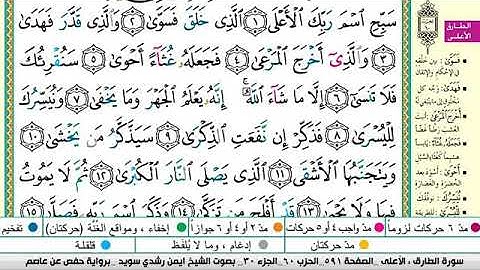 سَبِّحِ ٱسْمَ رَبِّكَ ٱلْأَعْلَى ١ ٱلَّذِى خَلَقَ فَسَوَّىٰ ٢ وَٱلَّذِى قَدَّرَ فَهَدَىٰ
٣ وَٱلَّذِىٓ أَخْرَجَ ٱلْمَرْعَىٰ ٤ فَجَعَلَهُۥ غُثَآءً أَحْوَىٰ ٥ سَنُقْرِئُكَ
فَلَا تَنسَىٰٓ ٦ إِلَّا مَا شَآءَ ٱللَّهُ ۚ إِنَّهُۥ يَعْلَمُ ٱلْجَهْرَ وَمَا يَخْفَىٰ ٧ وَنُيَسِّرُكَ
لِلْيُسْرَىٰ ٨ فَذَكِّرْ إِن نَّفَعَتِ ٱلذِّكْرَىٰ ٩ سَيَذَّكَّرُ مَن يَخْشَىٰ ١٠
وَيَتَجَنَّبُهَا ٱلْأَشْقَى ١١ ٱلَّذِى يَصْلَى ٱلنَّارَ ٱلْكُبْرَىٰ ١٢ ثُمَّ لَا يَمُوتُ
فِيهَا وَلَا يَحْيَىٰ ١٣ قَدْ أَفْلَحَ مَن تَزَكَّىٰ ١٤ وَذَكَرَ ٱسْمَ رَبِّهِۦ فَصَلَّىٰ ١٥
الطارق
الأعلى
مدّ ٦ حركات لزوماً مدّ واجب ٤ أو ٥ حركات مدّ ٢ أو ٤ أو ٦ جوازاً إخفاء، ومواقع الغُنَّة (حركتان) تفخيم
مدّ حركتان إدغام، وما لا يُلفَظ قلقلة
سورة الطارق ، الأعلى _الصفحة ٥٩١_ الحزب ٦٠_ الجزء ٣٠_ بصوت الشيخ ايمن رشدي سويد _برواية حفص عن عاصم